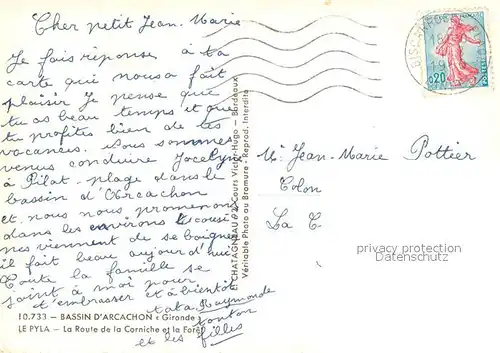 Cher petit Jean-Marie
Je fais réponse à ta
carte qui nous a fait
plaisir Je pense que
tu as beau temps et que
tu profites bien de tes
vacances. Nous sommes
venus conduire Jocelyne
à Pilat-plage dans le
bassin d'Arcachon
et nous nous promenons
dans les environs les cousi
nes viennent de se baigner
il fait beau aujourd'hui
Toute la famille se
joint à moi pour
t'embrasser et à bientôt
tata Raymonde
tonton
et les filles
10.733 — BASSIN D'ARCACHON « Gironde »
LE PYLA — La Route de la Corniche et la Forêt
CHATAGNEAU 92 Cours Victor-Hugo — Bordeaux
Véritable Photo au Bromure - Reprod. Interdite
0,20
POSTES
Mr Jean-Marie Pottier
Colon
La
privacy protection
Datenschutz